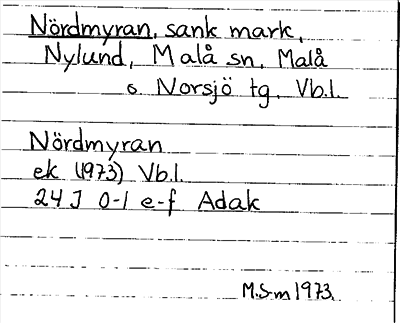 Nördmyran, sank mark,
Nylund, Malå sn, Malå
o Norsjö tg, Vb.l.
Nördmyran
ek (1973) Vb.l.
24 J 0-1 e-f Adak
M.S-m 1973.